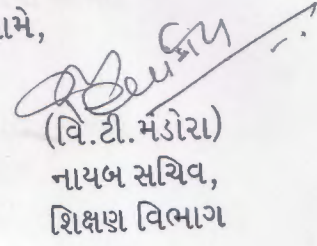 (વિ.ટી.મંડોરા)
નાયબ સચિવ,
શિક્ષણ વિભાગ